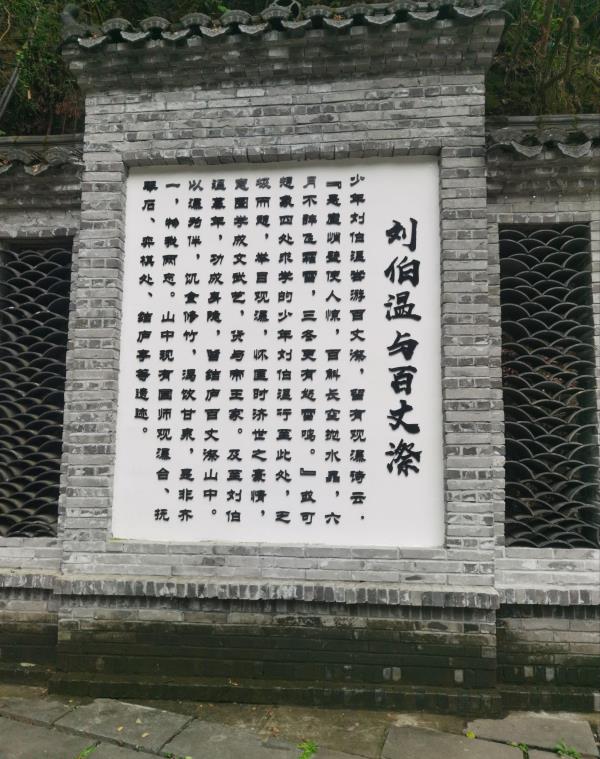 刘伯温与百丈漈
少年刘伯温尝游百丈漈，留有观瀑诗云，
『悬崖峭壁使人惊，百斛长空抛水晶，六
月不辞飞霜雪，三冬更有怒雷鸣。』或可
想象四处求学的少年刘伯温行至此处，乏
极而憩，举目观瀑，怀匡时济世之豪情，
意图学成文武艺，货与帝王家。及至刘伯
温暮年，功成身隐，曾结庐百丈漈山中。
以瀑为伴，饥食修竹，渴饮甘泉，是非齐
一，物我两忘。山中现有国师观瀑台、抚
琴石、弈棋处、结庐亭等遗迹。